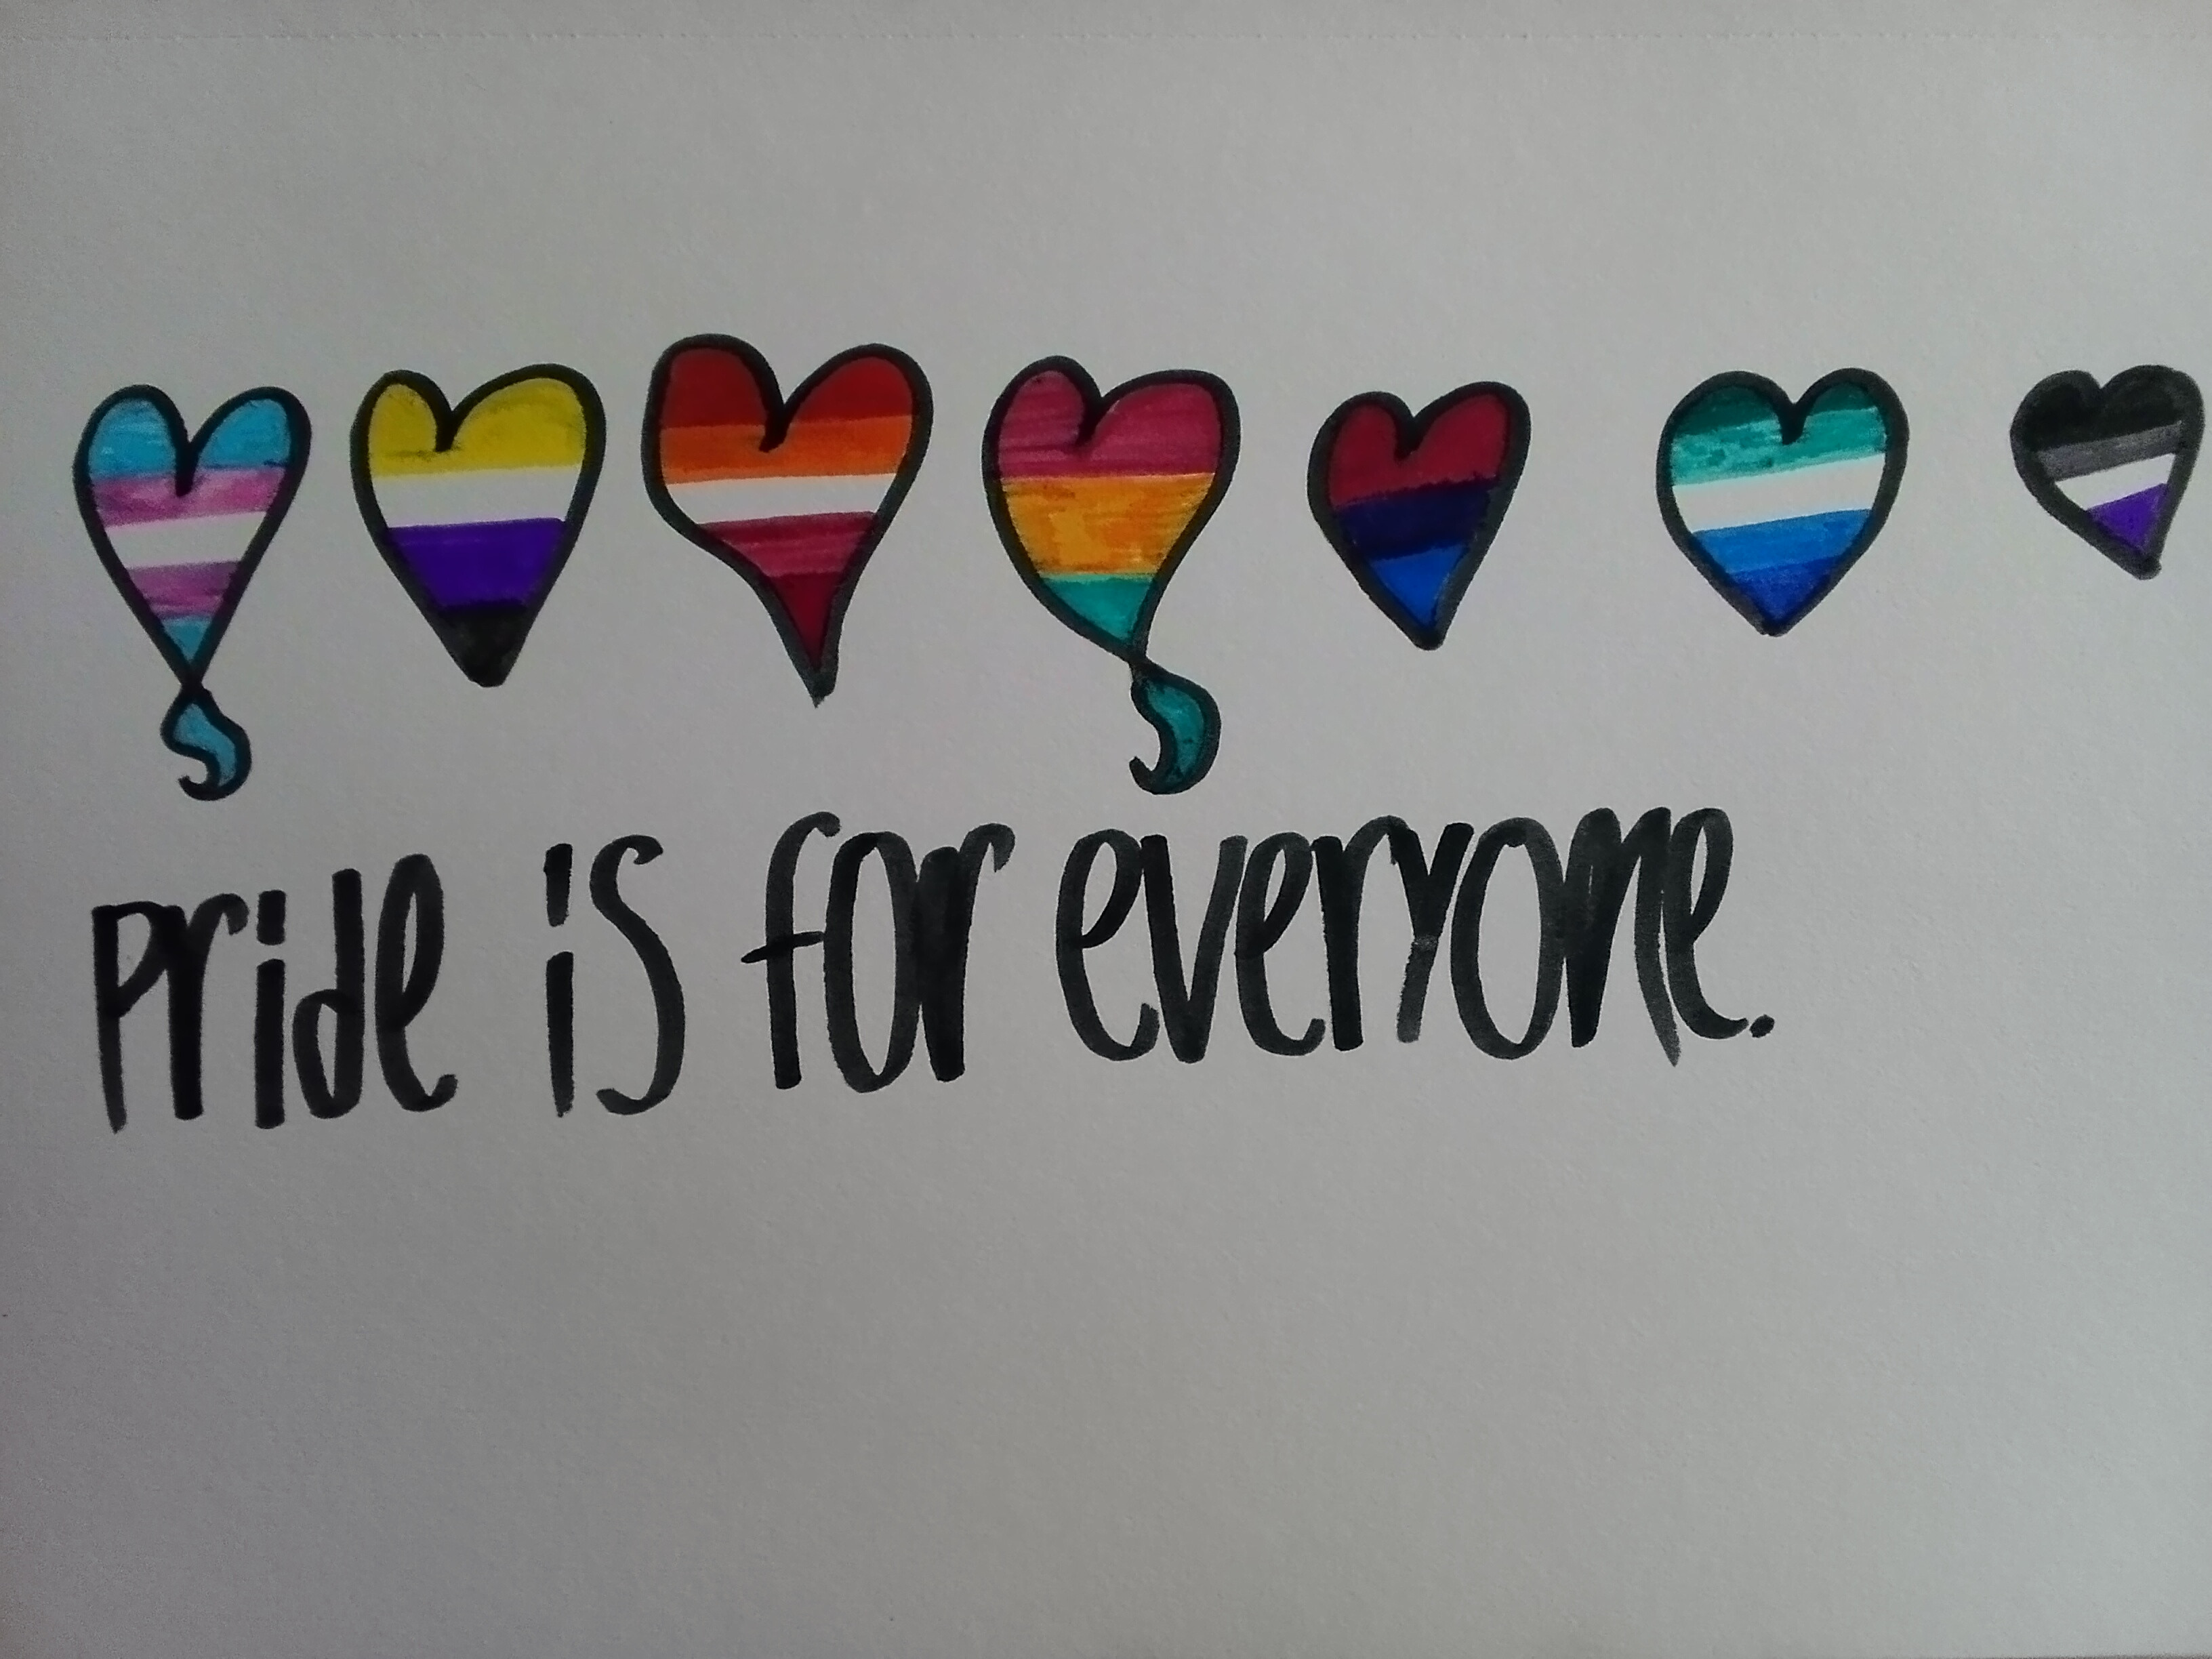 Pride is for everyone.